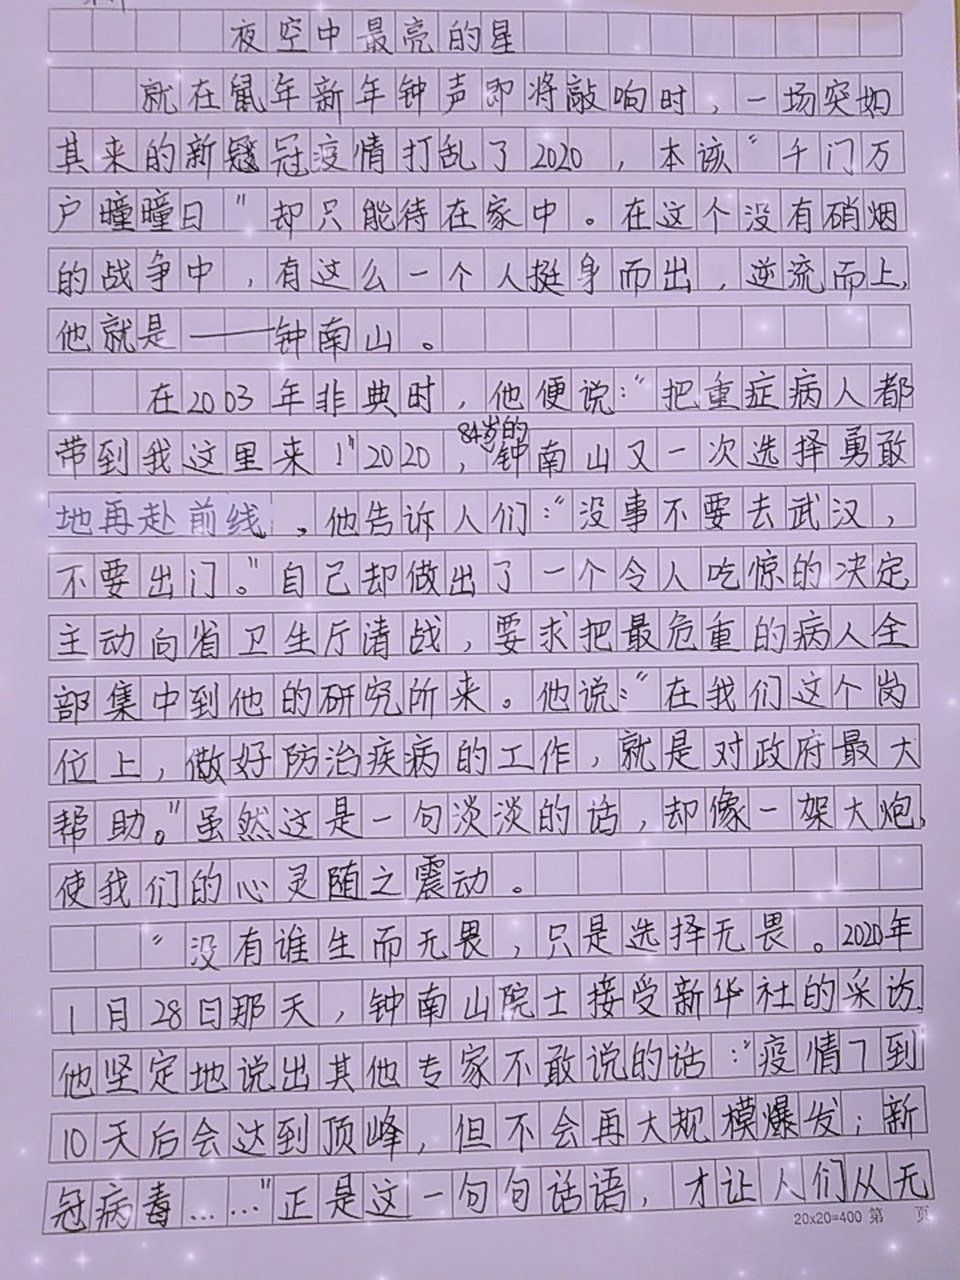 夜空中最亮的星
就在鼠年新年钟声即将敲响时，一场突如
其来的新冠疫情打乱了2020，本该“千门万
户曈曈日”却只能待在家中。在这个没有硝烟
的战争中，有这么一个人挺身而出，逆流而上，
他就是——钟南山。
在2003年非典时，他便说：“把重症病人都
带到我这里来！”2020，84岁的钟南山又一次选择勇敢
地再赴前线。他告诉人们：“没事不要去武汉，
不要出门。”自己却做出了一个令人吃惊的决定
主动向省卫生厅请战，要求把最危重的病人全
部集中到他的研究所来。他说：“在我们这个岗
位上，做好防治疾病的工作，就是对政府最大
帮助。”虽然这是一句淡淡的话，却像一架大炮，
使我们的心灵随之震动。
“没有谁生而无畏，只是选择无畏。2020年
1月28日那天，钟南山院士接受新华社的采访，
他坚定地说出其他专家不敢说的话：“疫情7到
10天后会达到顶峰，但不会再大规模爆发；新
冠病毒……”正是这一句句话语，才让人们从无
20×20=400 第 页